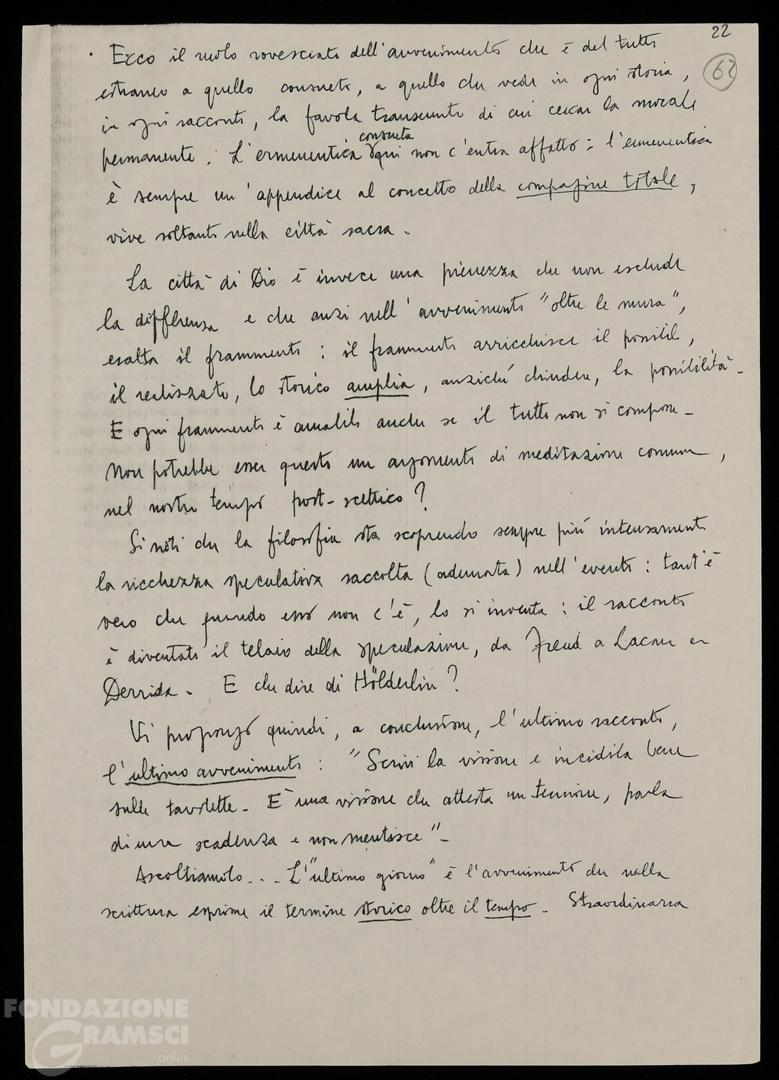 22
62
· Ecco il ruolo rovesciato dell'avvenimento che è del tutto
estraneo a quello consueto, a quello che vede in ogni storia,
in ogni racconto, la favola transeunte di cui cercar la morale
permanente. L'ermeneutica consueta qui non c'entra affatto: l'ermeneutica
è sempre un'appendice al concetto della compagine totale,
vive soltanto nella città sacra.
La città di Dio è invece una pienezza che non esclude
la differenza e che anzi nell'avvenimento "oltre le mura",
esalta il frammento: il frammento arricchisce il possibile,
il realizzato, lo storico amplia, anziché chiudere, la possibilità.
E ogni frammento è amabile anche se il tutto non si compone.
Non potrebbe esser questo un argomento di meditazione comune,
nel nostro tempo post-scettico?
Si noti che la filosofia sta scoprendo sempre più intensamente
la ricchezza speculativa raccolta (adunata) nell'evento: tant'è
vero che quando esso non c'è, lo si inventa: il racconto
è diventato il telaio della speculazione, da Freud a Lacan a
Derrida. E che dire di Hölderlin?
Vi propongo quindi, a conclusione, l'ultimo racconto,
l'ultimo avvenimento: "Scrivi la visione e incidila bene
sulle tavolette. È una visione che attesta un termine, parla
di una scadenza e non mentisce".
Ascoltiamolo... L'"ultimo giorno" è l'avvenimento che nella
scrittura esprime il termine storico oltre il tempo. Straordinaria
FONDAZIONE
GRAMSCI
onlus